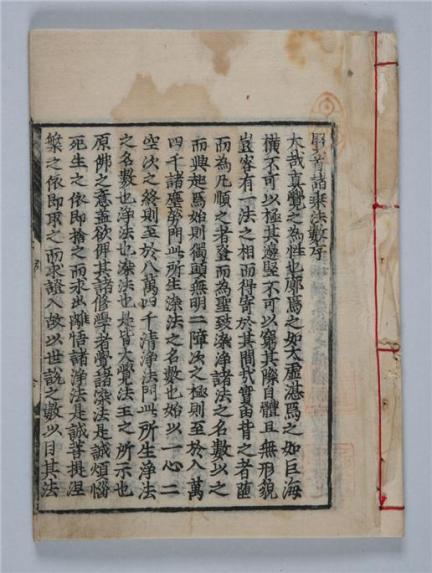 賢首諸乘法數序
大哉真覺之為性也廓焉之如太虛湛焉之如巨海
橫不可以極其邊竪不可以窮其際自體且無形貌
豈容有一法之相而得寄於其間哉寔由背之者墮
而為凡順之者登而為聖致染淨諸法之名數以之
而興起焉始則獨頭無明二障次之極則至於八萬
四千諸塵勞門此所生染法之名數也始以一心二
空次之終則至於八萬四千清淨法門此所生淨法
之名數也淨法也染法也是皆大覺法王之所示也
原佛之意蓋欲俾其諸修學者覺諸染法是誠煩惱
死生之依即捨之而求出離悟諸淨法是誠菩提涅
槃之依即取之而求證入故以世說之數以目其法